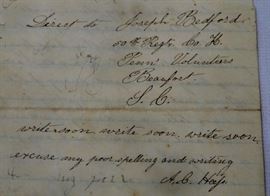 Direct to Joseph Bedford
Regt. Co H.
Penn. Volunteers
Beaufort
S. C.
write soon write soon write soon
excuse my poor spelling and writing
A. C.